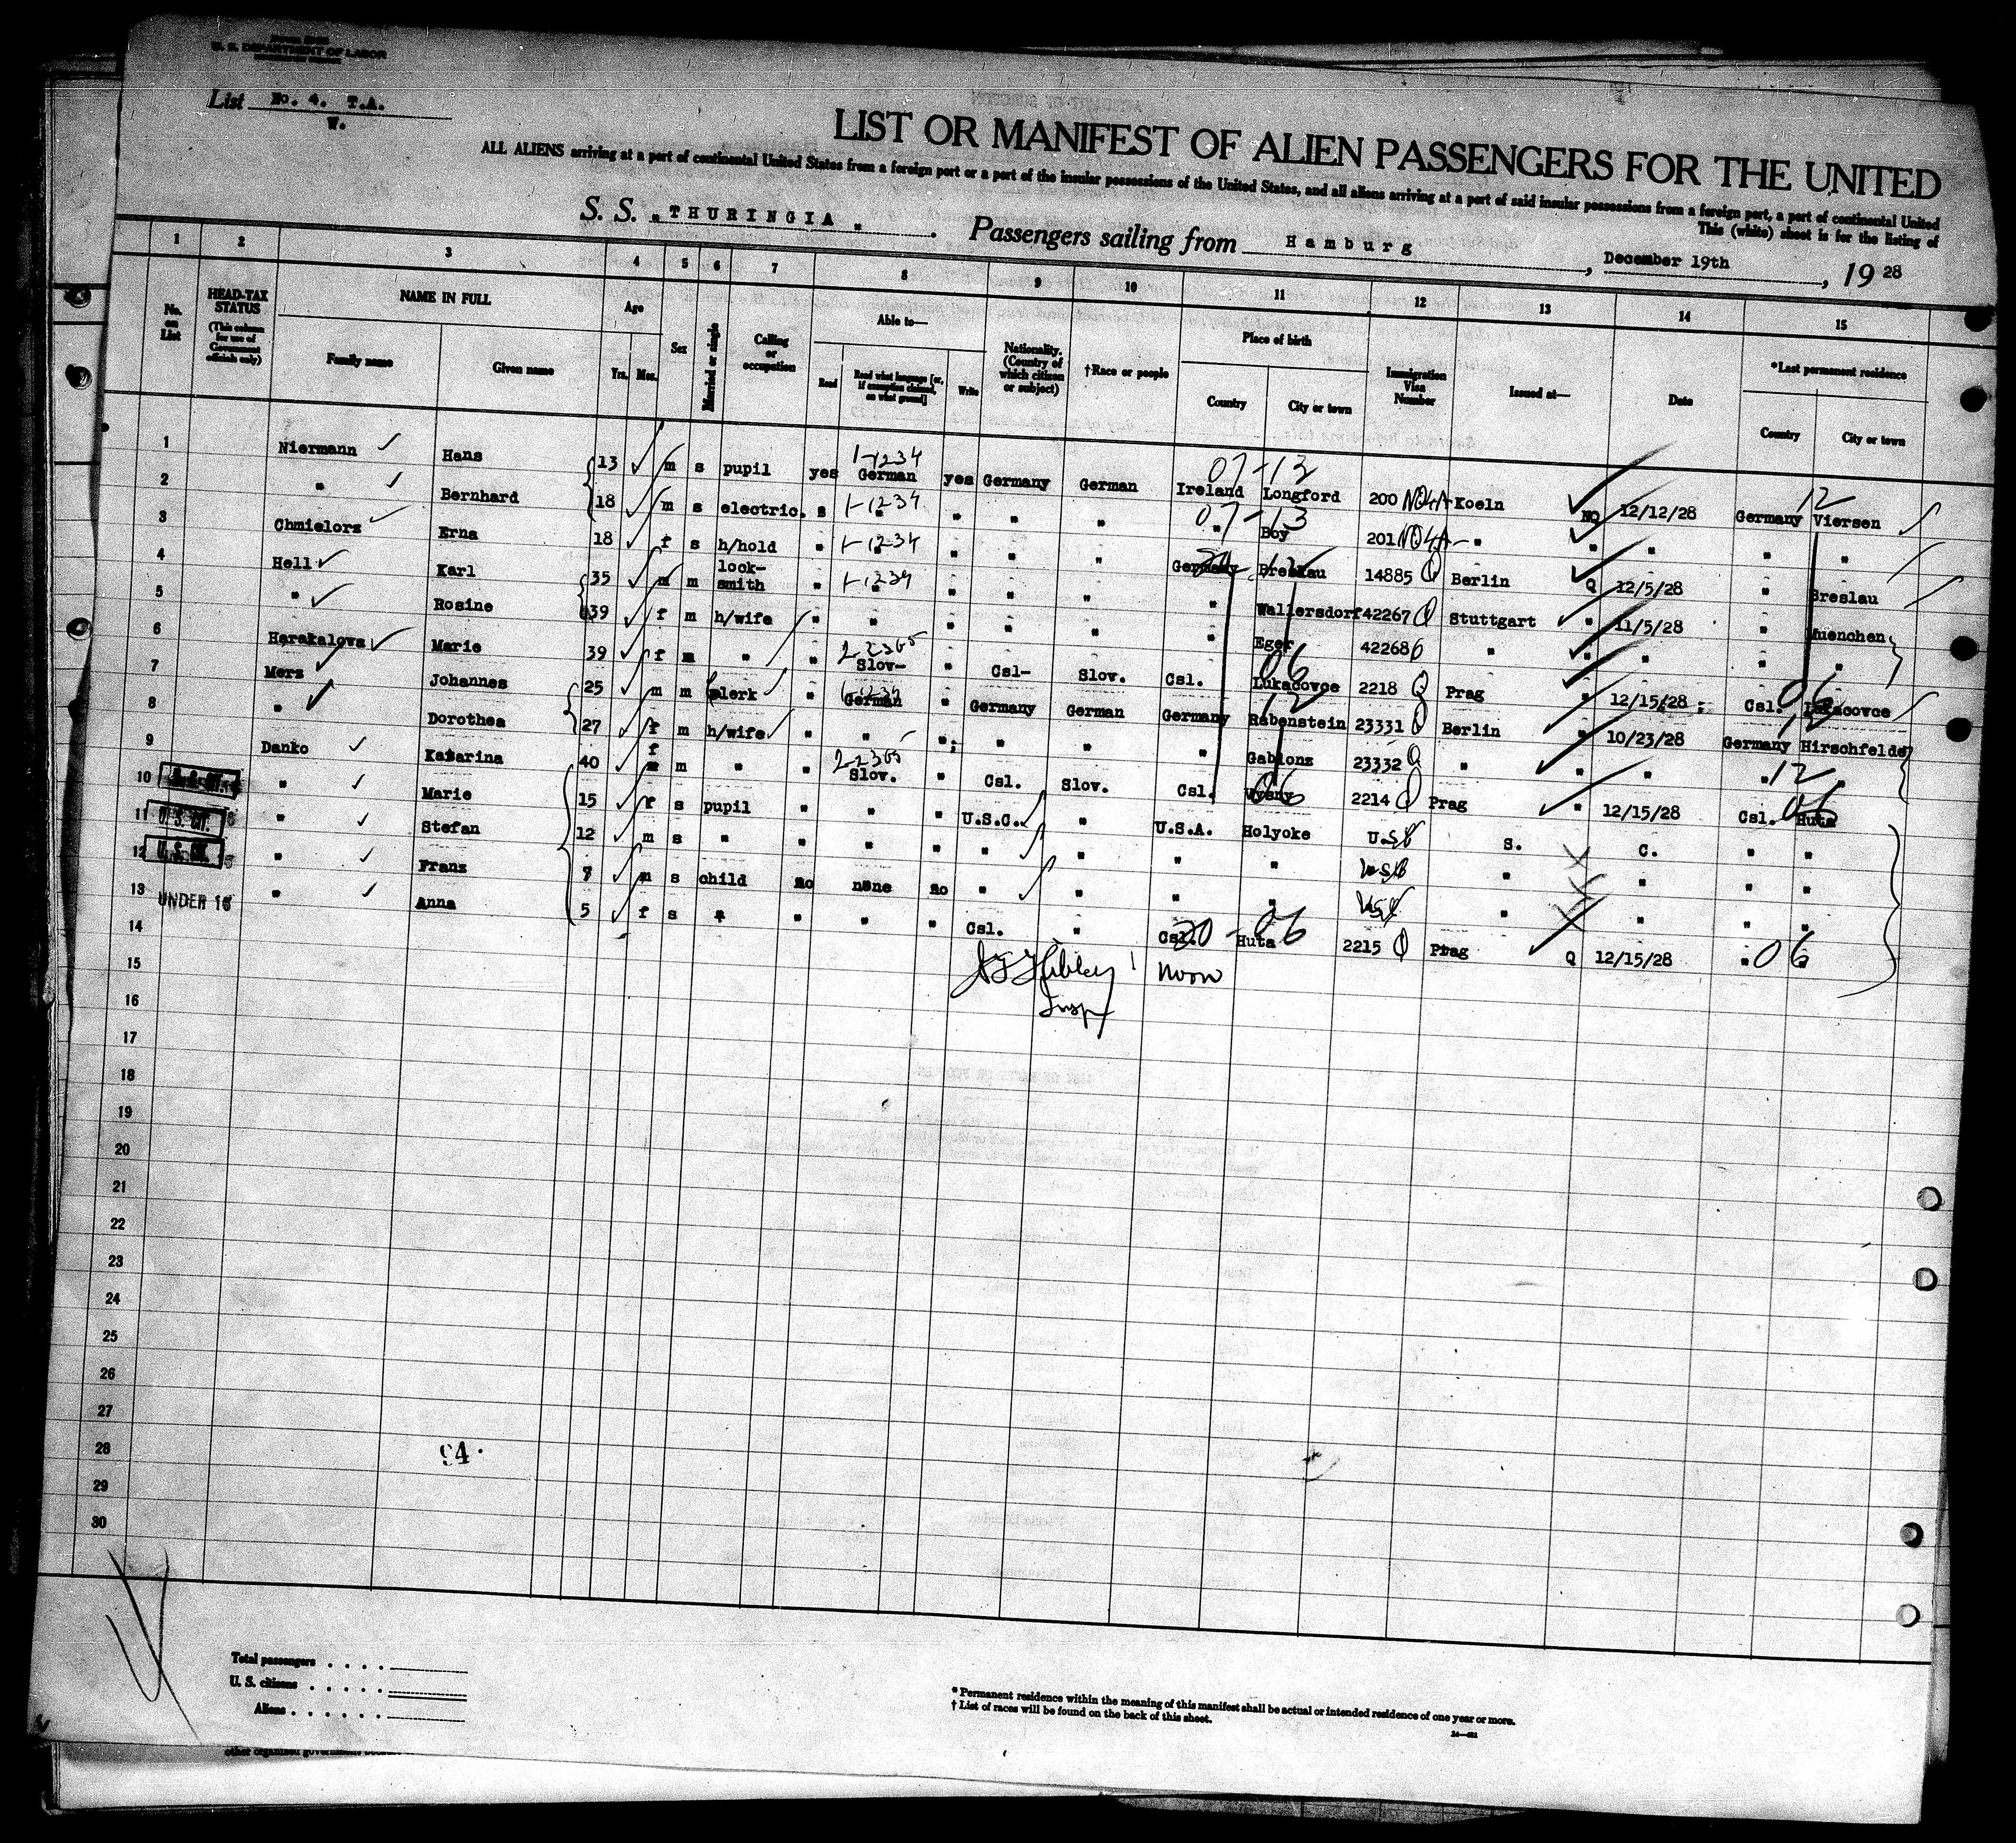 U. S. DEPARTMENT OF LABOR
List No. 4. T.A.
W.
LIST OR MANIFEST OF ALIEN PASSENGERS FOR THE UNITED
ALL ALIENS arriving at a port of continental United States from a foreign port or a port of the insular possessions of the United States, and all aliens arriving at a port of said insular possessions from a foreign port, a port of continental United
This (white) sheet is for the listing of
S. S. "THURINGIA". Passengers sailing from Hamburg, December 19th, 19 28
1 2 3 4 5 6 7 8 9 10 11 12 13 14 15
No. on List
HEAD-TAX STATUS (This column for use of Government officials only)
NAME IN FULL
Family name Given name
Age
Yrs. Mos.
Sex
Married or single
Calling or occupation
Able to—
Read Read what language [or, if exemption claimed, on what ground] Write
Nationality. (Country of which citizen or subject)
†Race or people
Place of birth
Country City or town
Immigration Visa Number
Issued at—
Date
*Last permanent residence
Country City or town
1 Niermann Hans 13 m s pupil yes German yes Germany German Ireland Longford 200 NQ4A Koeln NQ 12/12/28 Germany Viersen
2 " Bernhard 18 m s electric. s " " " " " Boy 201 NQ4A " " " " "
3 Chmielorz Erna 18 f s h/hold " " " " " Germany Breslau 14885 Q Berlin Q 12/5/28 " Breslau
4 Hell Karl 35 m m lock-smith " " " " " " Wallersdorf 42267 Q Stuttgart " 11/5/28 " Muenchen
5 " Rosine 39 f m h/wife " " " " " " Eger 42268 " " " " "
6 Harakalova Marie 39 f m " " Slov- " Csl- Slov. Csl. Lukacovce 2218 Q Prag " 12/15/28 Csl. Lukacovce
7 Merz Johannes 25 m m clerk " German " Germany German Germany Rabenstein 23331 Q Berlin " 10/23/28 Germany Hirschfelde
8 " Dorothea 27 f m h/wife " " " " " " Gablonz 23332 Q " " " "
9 Danko Katarina 40 f m " " Slov. " Csl. Slov. Csl. Vysny 2214 Q Prag " 12/15/28 Csl. Huta
10 " Marie 15 f s pupil " " " U.S.C. " U.S.A. Holyoke U.S. S. C. " "
11 U. S. CIT. " Stefan 12 m s " " " " " " " " " " " "
12 U. S. CIT. " Franz 7 m s child no none no " " " " " " " "
13 UNDER 16 " Anna 5 f s " " " " Csl. " Csl. Huta 2215 Q Prag Q 12/15/28 " "
14
15 noon
16 Insp
17
18
19
20
21
22
23
24
25
26
27
28 94.
29
30
Total passengers
U. S. citizens
Aliens
* Permanent residence within the meaning of this manifest shall be actual or intended residence of one year or more.
† List of races will be found on the back of this sheet.